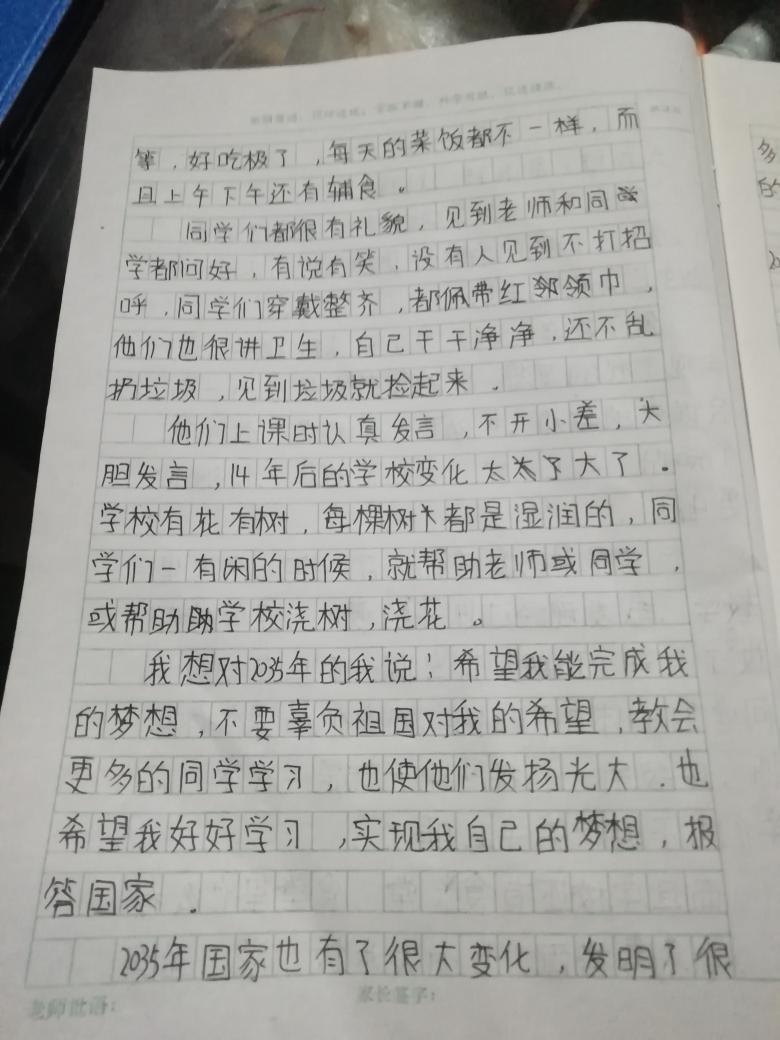 等，好吃极了，每天的菜饭都不一样，而
且上午下午还有辅食。
同学们都很有礼貌，见到老师和同
学都问好，有说有笑，没有人见到不打招
呼，同学们穿戴整齐，都佩带红邻领巾，
他们也很讲卫生，自己干干净净，还不乱
扔垃圾，见到垃圾就捡起来．
他们上课时认真发言，不开小差，大
胆发言，14年后的学校变化太太了大了。
学校有花有树，每棵树都是湿润的，同
学们一有闲的时候，就帮助老师或同学，
或帮助助学校浇树，浇花。
我想对2035年的我说：希望我能完成我
的梦想，不要辜负祖国对我的希望，教会
更多的同学学习，也使他们发扬光大．也
希望我好好学习，实现我自己的梦想，报
答国家．
2035年国家也有了很大变化，发明了很
老师批语：
家长签字：
多
的